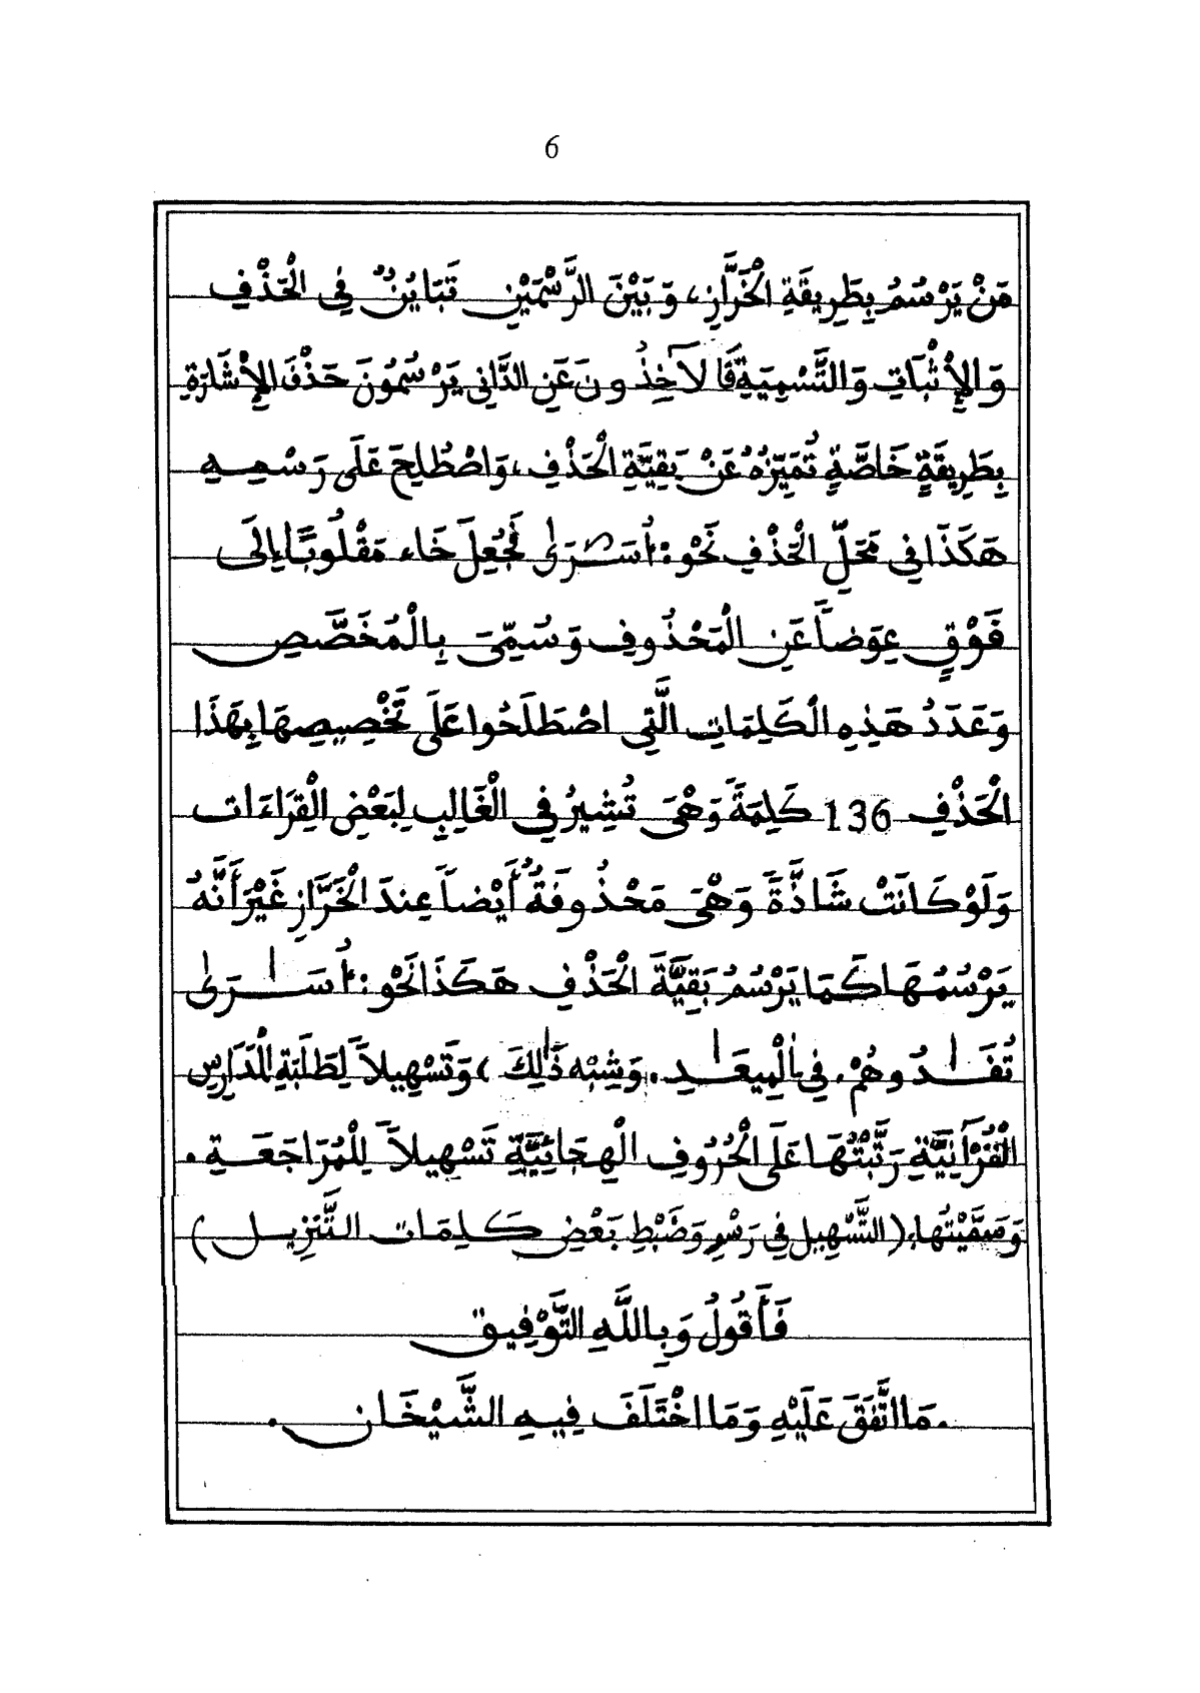 6
مَنْ يَرْسُمُ بِطَرِيقَةِ الْخَرَّازِ، وَبَيْنَ الرَّسْمَيْنِ تَبَايُنٌ فِي الْحَذْفِ
وَالْإِثْبَاتِ وَالتَّسْمِيَةِ فَالآخِذُونَ عَنِ الدَّانِي يَرْسُمُونَ حَذْفَ الْإِشَارَةِ
بِطَرِيقَةٍ خَاصَّةٍ تُمَيِّزُهُ عَنْ بَقِيَّةِ الْحَذْفِ، وَاصْطُلِحَ عَلَى رَسْمِهِ
هَكَذَا فِي مَحَلِّ الْحَذْفِ نَحْوُ: أُسَرَىٰ فَجُعِلَ خَاء مَقْلُوبًا إِلَى
فَوْقٍ عِوَضاً عَنِ الْمَحْذُوفِ وَسُمِّيَ بِالْمُخَصَّصِ
وَعَدَدُ هَذِهِ الْكَلِمَاتِ الَّتِي اصْطَلَحُوا عَلَى تَخْصِيصِهَا بِهَذَا
الْحَذْفِ 136 كَلِمَةً وَهْيَ تُشِيرُ فِي الْغَالِبِ لِبَعْضِ الْقِرَاءَاتِ
وَلَوْ كَانَتْ شَاذَّةً وَهْيَ مَحْذُوفَةٌ أَيْضاً عِندَ الْخَرَّازِ غَيْرَ أَنَّهُ
يَرْسُمُهَا كَمَا يَرْسُمُ بَقِيَّةَ الْحَذْفِ هَكَذَا نَحْوُ: أُسَٰرَىٰ
تُفَٰدُوهُمْ. فِي الْمِيعَٰدِ. وَشِبْهِ ذَٰلِكَ، وَتَسْهِيلاً لِطَلَبَةِ الْمَدَارِسِ
الْقُرْآنِيَّةِ رَتَّبْتُهَا عَلَى الْحُرُوفِ الْهِجَائِيَّةِ تَسْهِيلاً لِلْمُرَاجَعَةِ.
وَسَمَّيْتُهَا: (التَّسْهِيل فِي رَسْمِ وَضَبْطِ بَعْضِ كَلِمَاتِ التَّنْزِيل)
فَأَقُولُ وَبِاللَّهِ التَّوْفِيق
. مَا اتَّفَقَ عَلَيْهِ وَمَا اخْتَلَفَ فِيهِ الشَّيْخَان .